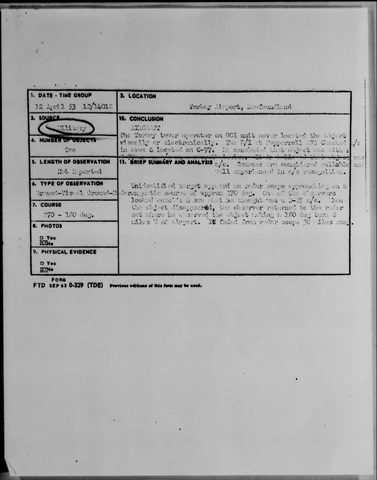 1. DATE - TIME GROUP
12 April 53 12/1401Z
2. LOCATION
Torbay Airport, Newfoundland
3. SOURCE
Military
10. CONCLUSION
AIRCRAFT
The Torbay tower operator on GCI unit never located the object
visually or electronically. The D/I at Pepperrell AFB Checked a/c
in area & located an C-97. He concluded that object was
4. NUMBER OF OBJECTS
One
5. LENGTH OF OBSERVATION
Not Reported
11. BRIEF SUMMARY AND ANALYSIS
a/c. Sources are considered reliable and
well experienced in a/c recognition.
6. TYPE OF OBSERVATION
Ground-Visual Ground-Radar
Unidentified target appeared on radar scope approaching on a
magnetic course of approx 270 deg. One of the observers
looked outside & saw what he thought was a a/c. When
the object disappeared, the observer returned to the radar
set where he observed the object making a 180 deg turn 8
miles of airport. It faded from radar scope 30 miles away.
7. COURSE
270 - 180 deg.
8. PHOTOS
□ Yes
No
9. PHYSICAL EVIDENCE
□ Yes
No
FORM
FTD SEP 63 0-329 (TDE) Previous editions of this form may be used.